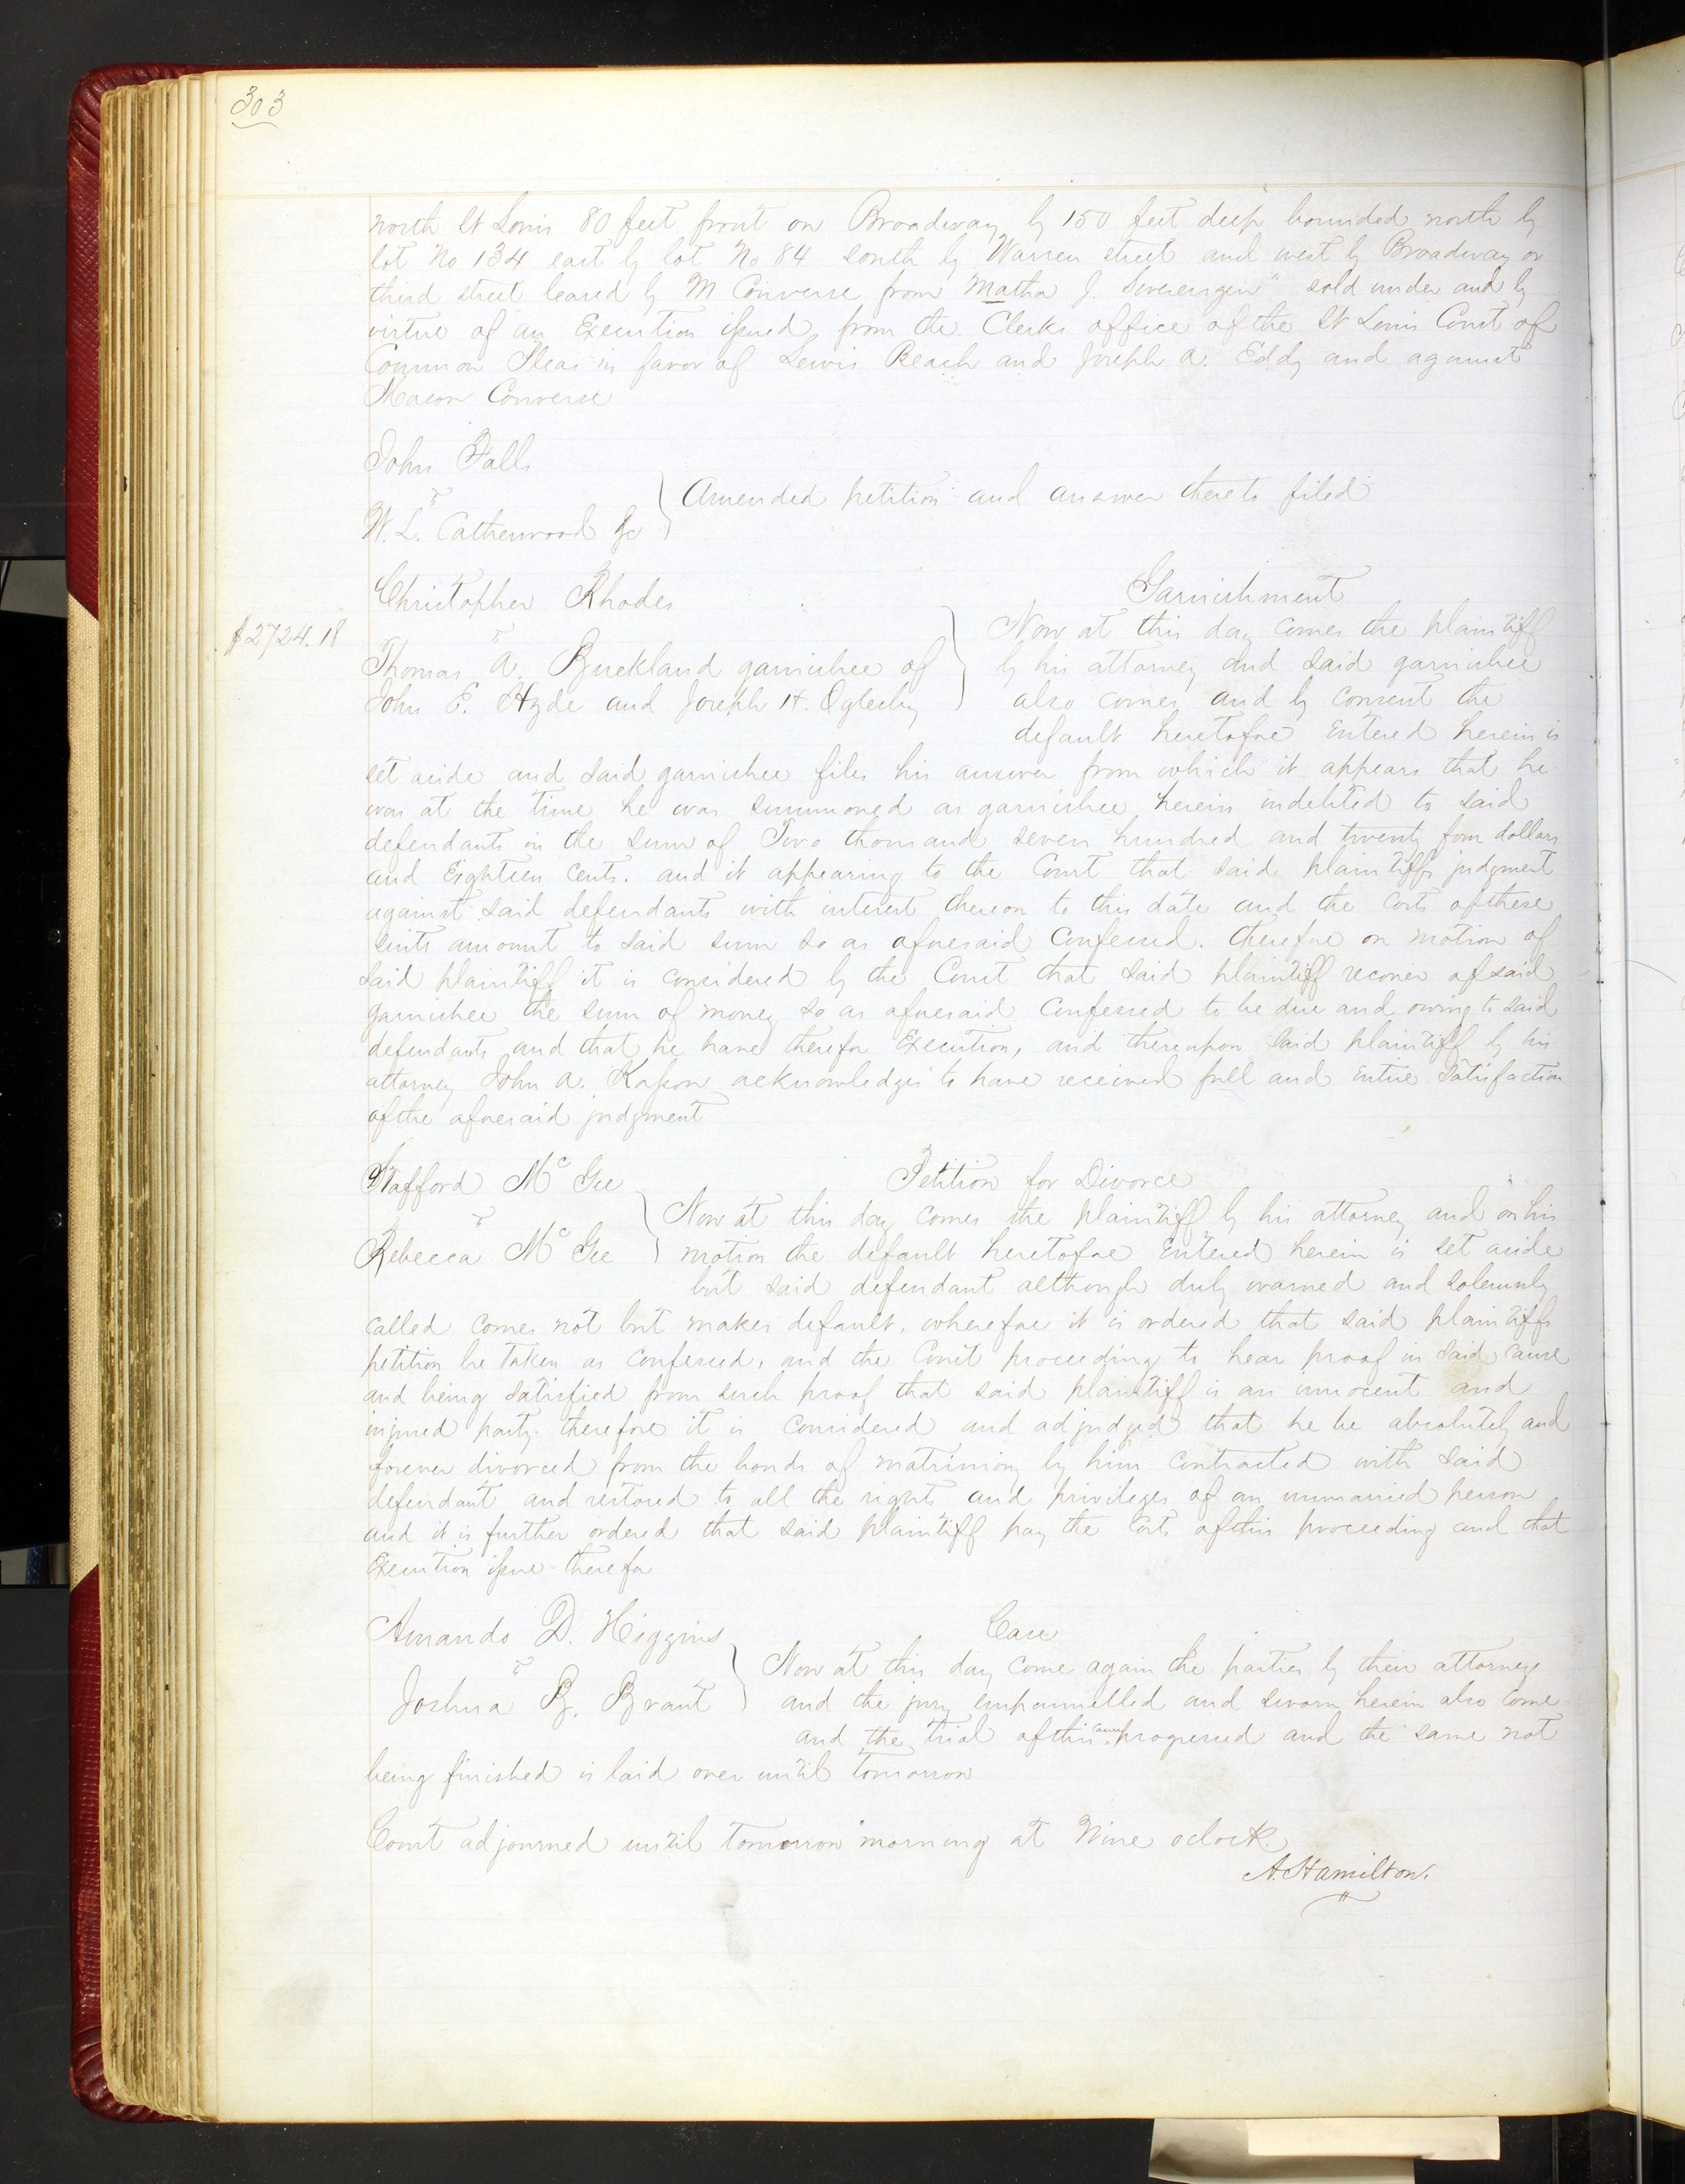 303
north St Louis 80 feet front on Broadway by 150 feet deep bounded north by
lot No 134 east by lot No 84 south by Warren street and west by Broadway or
third street leased by M Converse from Matha J. Swerengin" sold under and by
virtue of an Execution issued from the Clerks office of the St Louis Court of
Common Pleas in favor of Lewis Beach and Joseph A. Eddy and against
Mason Converse
John Falls
v
W. L. Catherwood &c
Amended petition and answer thereto filed
Christopher Rhodes
Garnishment
$2724.18
v
Thomas A. Buckland garnishee of
John E. Hyde and Joseph H. Oglesby
Now at this day comes the plaintiff
by his attorney and said garnishee
also comes and by consent the
default heretofore entered herein is
set aside and said garnishee files his answer from which it appears that he
was at the time he was summoned as garnishee herein indebted to said
defendants in the sum of Two thousand seven hundred and twenty four dollars
and Eighteen cents. and it appearing to the Court that said plaintiffs judgment
against said defendants with interest thereon to this date and the costs of these
suits amount to said sum so as aforesaid confessed. therefore on motion of
said plaintiff it is considered by the Court that said plaintiff recover of said
garnishee the sum of money so as aforesaid confessed to be due and owing to said
defendants and that he have therefor Execution, and thereupon said plaintiff by his
attorney John A. Kasson acknowledges to have received full and entire satisfaction
of the aforesaid judgment
Stafford McGee
Petition for Divorce
v
Rebecca McGee
Now at this day comes the plaintiff by his attorney and on his
motion the default heretofore entered herein is set aside
but said defendant although duly warned and solemnly
called comes not but makes default, wherefore it is ordered that said plaintiffs
petition be taken as confessed, and the Court proceeding to hear proof in said cause
and being satisfied from such proof that said plaintiff is an innocent and
injured party therefore it is considered and adjudged that he be absolutely and
forever divorced from the bonds of matrimony by him contracted with said
defendant and restored to all the rights and privileges of an unmarried person
and it is further ordered that said plaintiff pay the costs of this proceeding and that
Execution issue therefor
Amando D. Higgins
Case
v
Joshua B. Brant
Now at this day come again the parties by their attorneys
and the jury empannelled and sworn herein also come
and the trial of this cause progressed and the same not
being finished is laid over until tomorrow
Court adjourned until tomorrow morning at Nine oclock.
A. Hamilton.